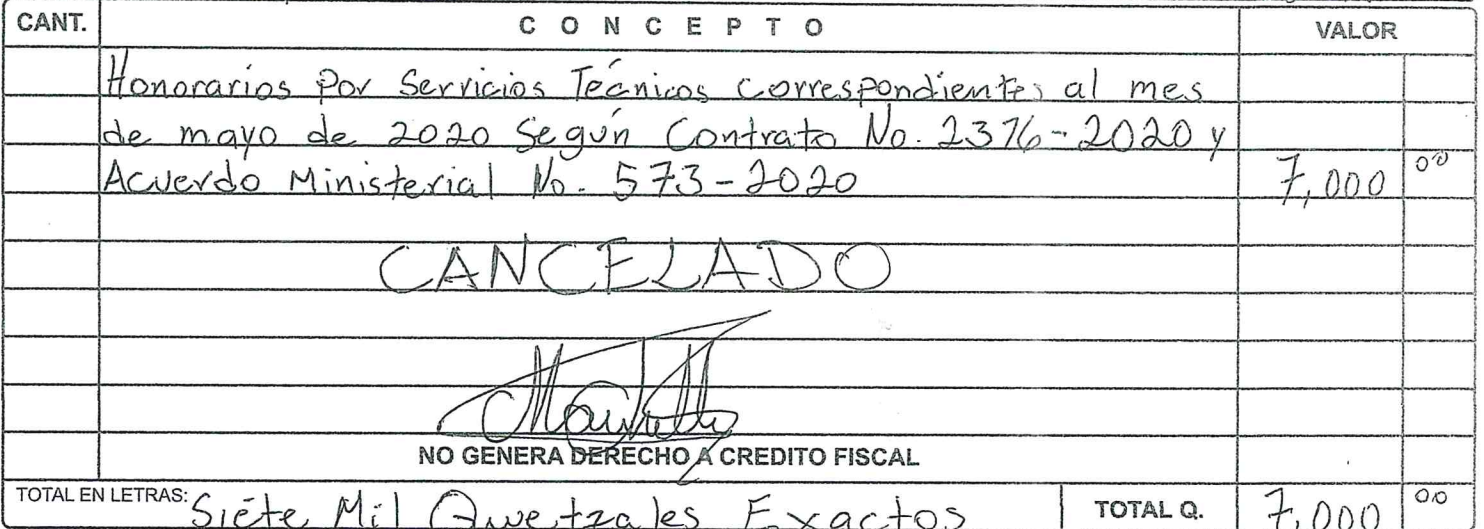 CANT. CONCEPTO VALOR
Honorarios Por Servicios Técnicos Correspondientes al mes
de mayo de 2020 Según Contrato No. 2376-2020 y
Acuerdo Ministerial No. 573-2020 7,000 00
CANCELADO
NO GENERA DERECHO A CREDITO FISCAL
TOTAL EN LETRAS: Siete Mil Quetzales Exactos TOTAL Q. 7,000 00